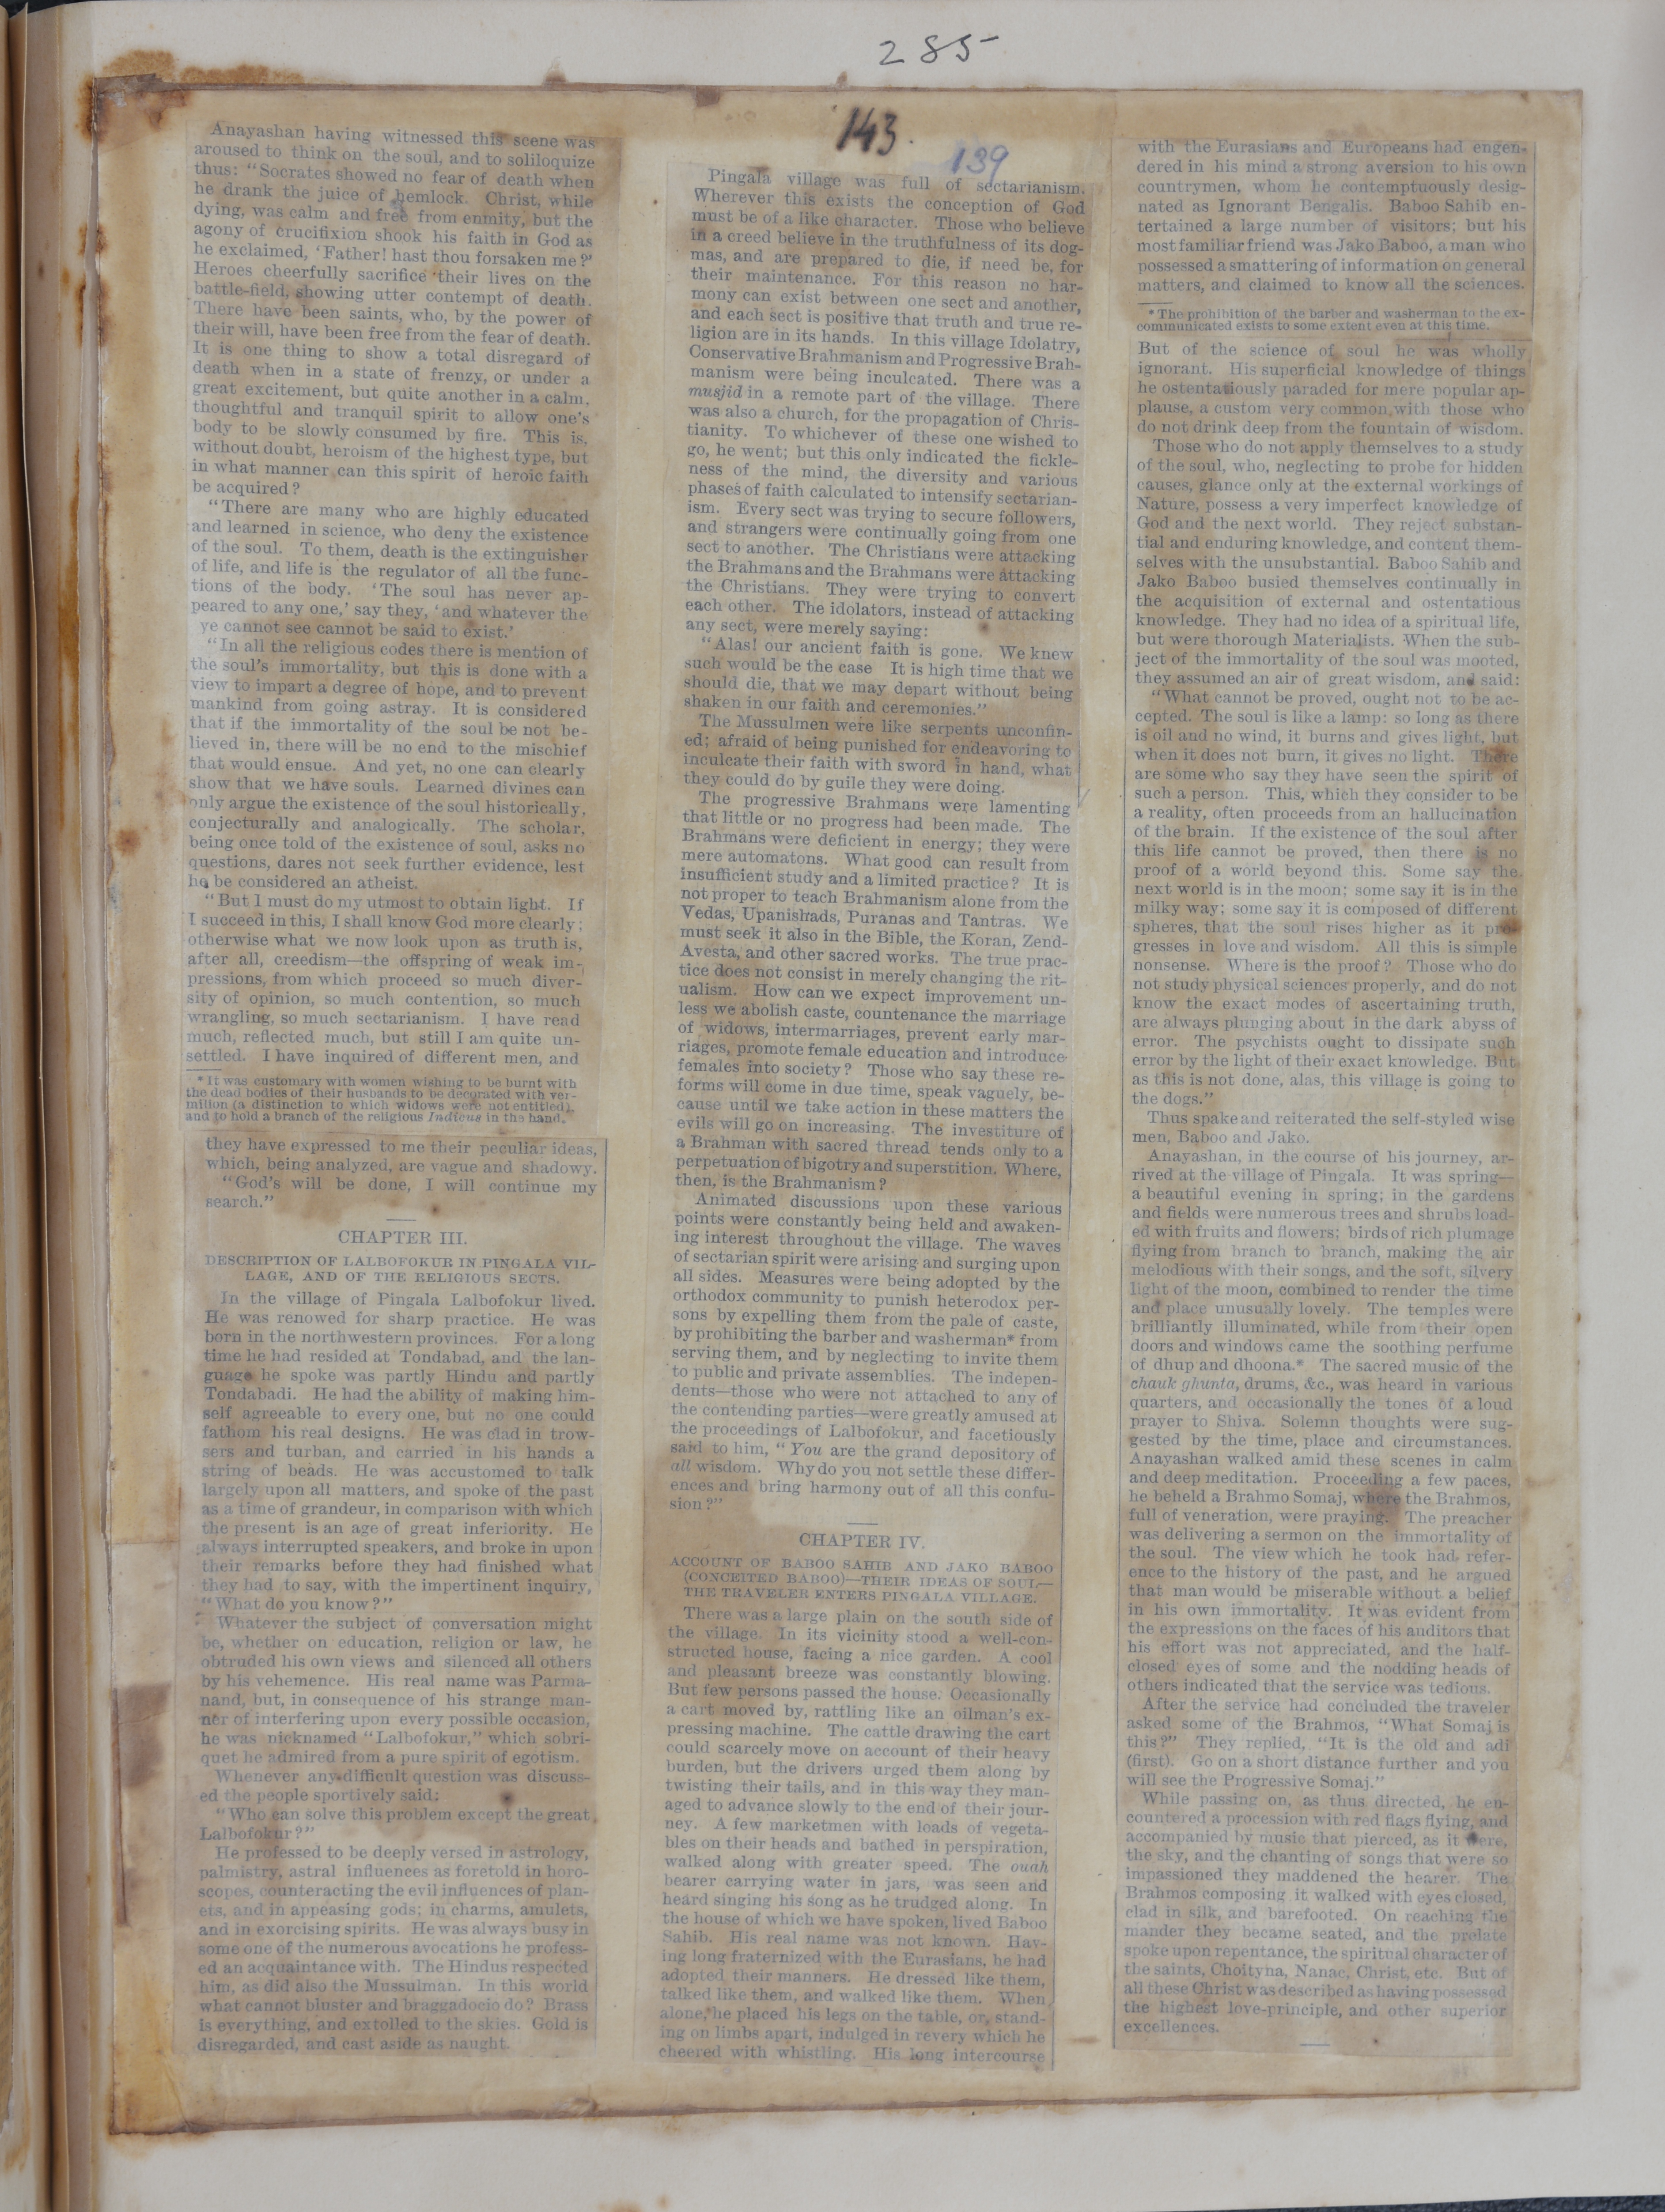 285
143.
139
Anayashan having witnessed this scene was
aroused to think on the soul, and to soliloquize
thus: "Socrates showed no fear of death when
he drank the juice of hemlock. Christ, while
dying, was calm and free from enmity, but the
agony of crucifixion shook his faith in God as
he exclaimed, 'Father! hast thou forsaken me?'
Heroes cheerfully sacrifice their lives on the
battle-field, showing utter contempt of death.
There have been saints, who, by the power of
their will, have been free from the fear of death.
It is one thing to show a total disregard of
death when in a state of frenzy, or under a
great excitement, but quite another in a calm,
thoughtful and tranquil spirit to allow one's
body to be slowly consumed by fire. This is,
without doubt, heroism of the highest type, but
in what manner can this spirit of heroic faith
be acquired?
"There are many who are highly educated
and learned in science, who deny the existence
of the soul. To them, death is the extinguisher
of life, and life is the regulator of all the func-
tions of the body. 'The soul has never ap-
peared to any one,' say they, 'and whatever the
ye cannot see cannot be said to exist.'
"In all the religious codes there is mention of
the soul's immortality, but this is done with a
view to impart a degree of hope, and to prevent
mankind from going astray. It is considered
that if the immortality of the soul be not be-
lieved in, there will be no end to the mischief
that would ensue. And yet, no one can clearly
show that we have souls. Learned divines can
only argue the existence of the soul historically,
conjecturally and analogically. The scholar,
being once told of the existence of soul, asks no
questions, dares not seek further evidence, lest
he be considered an atheist.
"But I must do my utmost to obtain light. If
I succeed in this, I shall know God more clearly;
otherwise what we now look upon as truth is,
after all, creedism—the offspring of weak im-
pressions, from which proceed so much diver-
sity of opinion, so much contention, so much
wrangling, so much sectarianism. I have read
much, reflected much, but still I am quite un-
settled. I have inquired of different men, and
* It was customary with women wishing to be burnt with
the dead bodies of their husbands to be decorated with ver-
milion (a distinction to which widows were not entitled),
and to hold a branch of the religious Indicus in the hand.
they have expressed to me their peculiar ideas,
which, being analyzed, are vague and shadowy.
"God's will be done, I will continue my
search."
CHAPTER III.
DESCRIPTION OF LALBOFOKUR IN PINGALA VIL-
LAGE, AND OF THE RELIGIOUS SECTS.
In the village of Pingala Lalbofokur lived.
He was renowed for sharp practice. He was
born in the northwestern provinces. For a long
time he had resided at Tondabad, and the lan-
guage he spoke was partly Hindu and partly
Tondabadi. He had the ability of making him-
self agreeable to every one, but no one could
fathom his real designs. He was clad in trow-
sers and turban, and carried in his hands a
string of beads. He was accustomed to talk
largely upon all matters, and spoke of the past
as a time of grandeur, in comparison with which
the present is an age of great inferiority. He
always interrupted speakers, and broke in upon
their remarks before they had finished what
they had to say, with the impertinent inquiry,
"What do you know?"
Whatever the subject of conversation might
be, whether on education, religion or law, he
obtruded his own views and silenced all others
by his vehemence. His real name was Parma-
nand, but, in consequence of his strange man-
ner of interfering upon every possible occasion,
he was nicknamed "Lalbofokur," which sobri-
quet he admired from a pure spirit of egotism.
Whenever any difficult question was discuss-
ed the people sportively said:
"Who can solve this problem except the great
Lalbofokur?"
He professed to be deeply versed in astrology,
palmistry, astral influences as foretold in horo-
scopes, counteracting the evil influences of plan-
ets, and in appeasing gods; in charms, amulets,
and in exorcising spirits. He was always busy in
some one of the numerous avocations he profess-
ed an acquaintance with. The Hindus respected
him, as did also the Mussulman. In this world
what cannot bluster and braggadocio do? Brass
is everything, and extolled to the skies. Gold is
disregarded, and cast aside as naught.
Pingala village was full of sectarianism.
Wherever this exists the conception of God
must be of a like character. Those who believe
in a creed believe in the truthfulness of its dog-
mas, and are prepared to die, if need be, for
their maintenance. For this reason no har-
mony can exist between one sect and another,
and each sect is positive that truth and true re-
ligion are in its hands. In this village Idolatry,
Conservative Brahmanism and Progressive Brah-
manism were being inculcated. There was a
musjid in a remote part of the village. There
was also a church, for the propagation of Chris-
tianity. To whichever of these one wished to
go, he went; but this only indicated the fickle-
ness of the mind, the diversity and various
phases of faith calculated to intensify sectarian-
ism. Every sect was trying to secure followers,
and strangers were continually going from one
sect to another. The Christians were attacking
the Brahmans and the Brahmans were attacking
the Christians. They were trying to convert
each other. The idolators, instead of attacking
any sect, were merely saying:
"Alas! our ancient faith is gone. We knew
such would be the case It is high time that we
should die, that we may depart without being
shaken in our faith and ceremonies."
The Mussulmen were like serpents unconfin-
ed; afraid of being punished for endeavoring to
inculcate their faith with sword in hand, what
they could do by guile they were doing.
The progressive Brahmans were lamenting
that little or no progress had been made. The
Brahmans were deficient in energy; they were
mere automatons. What good can result from
insufficient study and a limited practice? It is
not proper to teach Brahmanism alone from the
Vedas, Upanishads, Puranas and Tantras. We
must seek it also in the Bible, the Koran, Zend-
Avesta, and other sacred works. The true prac-
tice does not consist in merely changing the rit-
ualism. How can we expect improvement un-
less we abolish caste, countenance the marriage
of widows, intermarriages, prevent early mar-
riages, promote female education and introduce
females into society? Those who say these re-
forms will come in due time, speak vaguely, be-
cause until we take action in these matters the
evils will go on increasing. The investiture of
a Brahman with sacred thread tends only to a
perpetuation of bigotry and superstition. Where,
then, is the Brahmanism?
Animated discussions upon these various
points were constantly being held and awaken-
ing interest throughout the village. The waves
of sectarian spirit were arising and surging upon
all sides. Measures were being adopted by the
orthodox community to punish heterodox per-
sons by expelling them from the pale of caste,
by prohibiting the barber and washerman* from
serving them, and by neglecting to invite them
to public and private assemblies. The indepen-
dents—those who were not attached to any of
the contending parties—were greatly amused at
the proceedings of Lalbofokur, and facetiously
said to him, "You are the grand depository of
all wisdom. Why do you not settle these differ-
ences and bring harmony out of all this confu-
sion?"
CHAPTER IV.
ACCOUNT OF BABOO SAHIB AND JAKO BABOO
(CONCEITED BABOO)—THEIR IDEAS OF SOUL—
THE TRAVELER ENTERS PINGALA VILLAGE.
There was a large plain on the south side of
the village. In its vicinity stood a well-con-
structed house, facing a nice garden. A cool
and pleasant breeze was constantly blowing.
But few persons passed the house. Occasionally
a cart moved by, rattling like an oilman's ex-
pressing machine. The cattle drawing the cart
could scarcely move on account of their heavy
burden, but the drivers urged them along by
twisting their tails, and in this way they man-
aged to advance slowly to the end of their jour-
ney. A few marketmen with loads of vegeta-
bles on their heads and bathed in perspiration,
walked along with greater speed. The ouah
bearer carrying water in jars, was seen and
heard singing his song as he trudged along. In
the house of which we have spoken, lived Baboo
Sahib. His real name was not known. Hav-
ing long fraternized with the Eurasians, he had
adopted their manners. He dressed like them,
talked like them, and walked like them. When
alone, he placed his legs on the table, or, stand-
ing on limbs apart, indulged in revery which he
cheered with whistling. His long intercourse
with the Eurasians and Europeans had engen-
dered in his mind a strong aversion to his own
countrymen, whom he contemptuously desig-
nated as Ignorant Bengalis. Baboo Sahib en-
tertained a large number of visitors; but his
most familiar friend was Jako Baboo, a man who
possessed a smattering of information on general
matters, and claimed to know all the sciences.
* The prohibition of the barber and washerman to the ex-
communicated exists to some extent even at this time.
But of the science of soul he was wholly
ignorant. His superficial knowledge of things
he ostentatiously paraded for mere popular ap-
plause, a custom very common with those who
do not drink deep from the fountain of wisdom.
Those who do not apply themselves to a study
of the soul, who, neglecting to probe for hidden
causes, glance only at the external workings of
Nature, possess a very imperfect knowledge of
God and the next world. They reject substan-
tial and enduring knowledge, and content them-
selves with the unsubstantial. Baboo Sahib and
Jako Baboo busied themselves continually in
the acquisition of external and ostentatious
knowledge. They had no idea of a spiritual life,
but were thorough Materialists. When the sub-
ject of the immortality of the soul was mooted,
they assumed an air of great wisdom, and said:
"What cannot be proved, ought not to be ac-
cepted. The soul is like a lamp: so long as there
is oil and no wind, it burns and gives light, but
when it does not burn, it gives no light. There
are some who say they have seen the spirit of
such a person. This, which they consider to be
a reality, often proceeds from an hallucination
of the brain. If the existence of the soul after
this life cannot be proved, then there is no
proof of a world beyond this. Some say the
next world is in the moon; some say it is in the
milky way; some say it is composed of different
spheres, that the soul rises higher as it pro-
gresses in love and wisdom. All this is simple
nonsense. Where is the proof? Those who do
not study physical sciences properly, and do not
know the exact modes of ascertaining truth,
are always plunging about in the dark abyss of
error. The psychists ought to dissipate such
error by the light of their exact knowledge. But
as this is not done, alas, this village is going to
the dogs."
Thus spake and reiterated the self-styled wise
men, Baboo and Jako.
Anayashan, in the course of his journey, ar-
rived at the village of Pingala. It was spring—
a beautiful evening in spring; in the gardens
and fields were numerous trees and shrubs load-
ed with fruits and flowers; birds of rich plumage
flying from branch to branch, making the air
melodious with their songs, and the soft, silvery
light of the moon, combined to render the time
and place unusually lovely. The temples were
brilliantly illuminated, while from their open
doors and windows came the soothing perfume
of dhup and dhoona.* The sacred music of the
chauk ghunta, drums, &c., was heard in various
quarters, and occasionally the tones of a loud
prayer to Shiva. Solemn thoughts were sug-
gested by the time, place and circumstances.
Anayashan walked amid these scenes in calm
and deep meditation. Proceeding a few paces,
he beheld a Brahmo Somaj, where the Brahmos,
full of veneration, were praying. The preacher
was delivering a sermon on the immortality of
the soul. The view which he took had refer-
ence to the history of the past, and he argued
that man would be miserable without a belief
in his own immortality. It was evident from
the expressions on the faces of his auditors that
his effort was not appreciated, and the half-
closed eyes of some and the nodding heads of
others indicated that the service was tedious.
After the service had concluded the traveler
asked some of the Brahmos, "What Somaj is
this?" They replied, "It is the old and adi
(first). Go on a short distance further and you
will see the Progressive Somaj."
While passing on, as thus directed, he en-
countered a procession with red flags flying, and
accompanied by music that pierced, as it were,
the sky, and the chanting of songs that were so
impassioned they maddened the hearer. The
Brahmos composing it walked with eyes closed,
clad in silk, and barefooted. On reaching the
mander they became seated, and the prelate
spoke upon repentance, the spiritual character of
the saints, Choityna, Nanac, Christ, etc. But of
all these Christ was described as having possessed
the highest love-principle, and other superior
excellences.